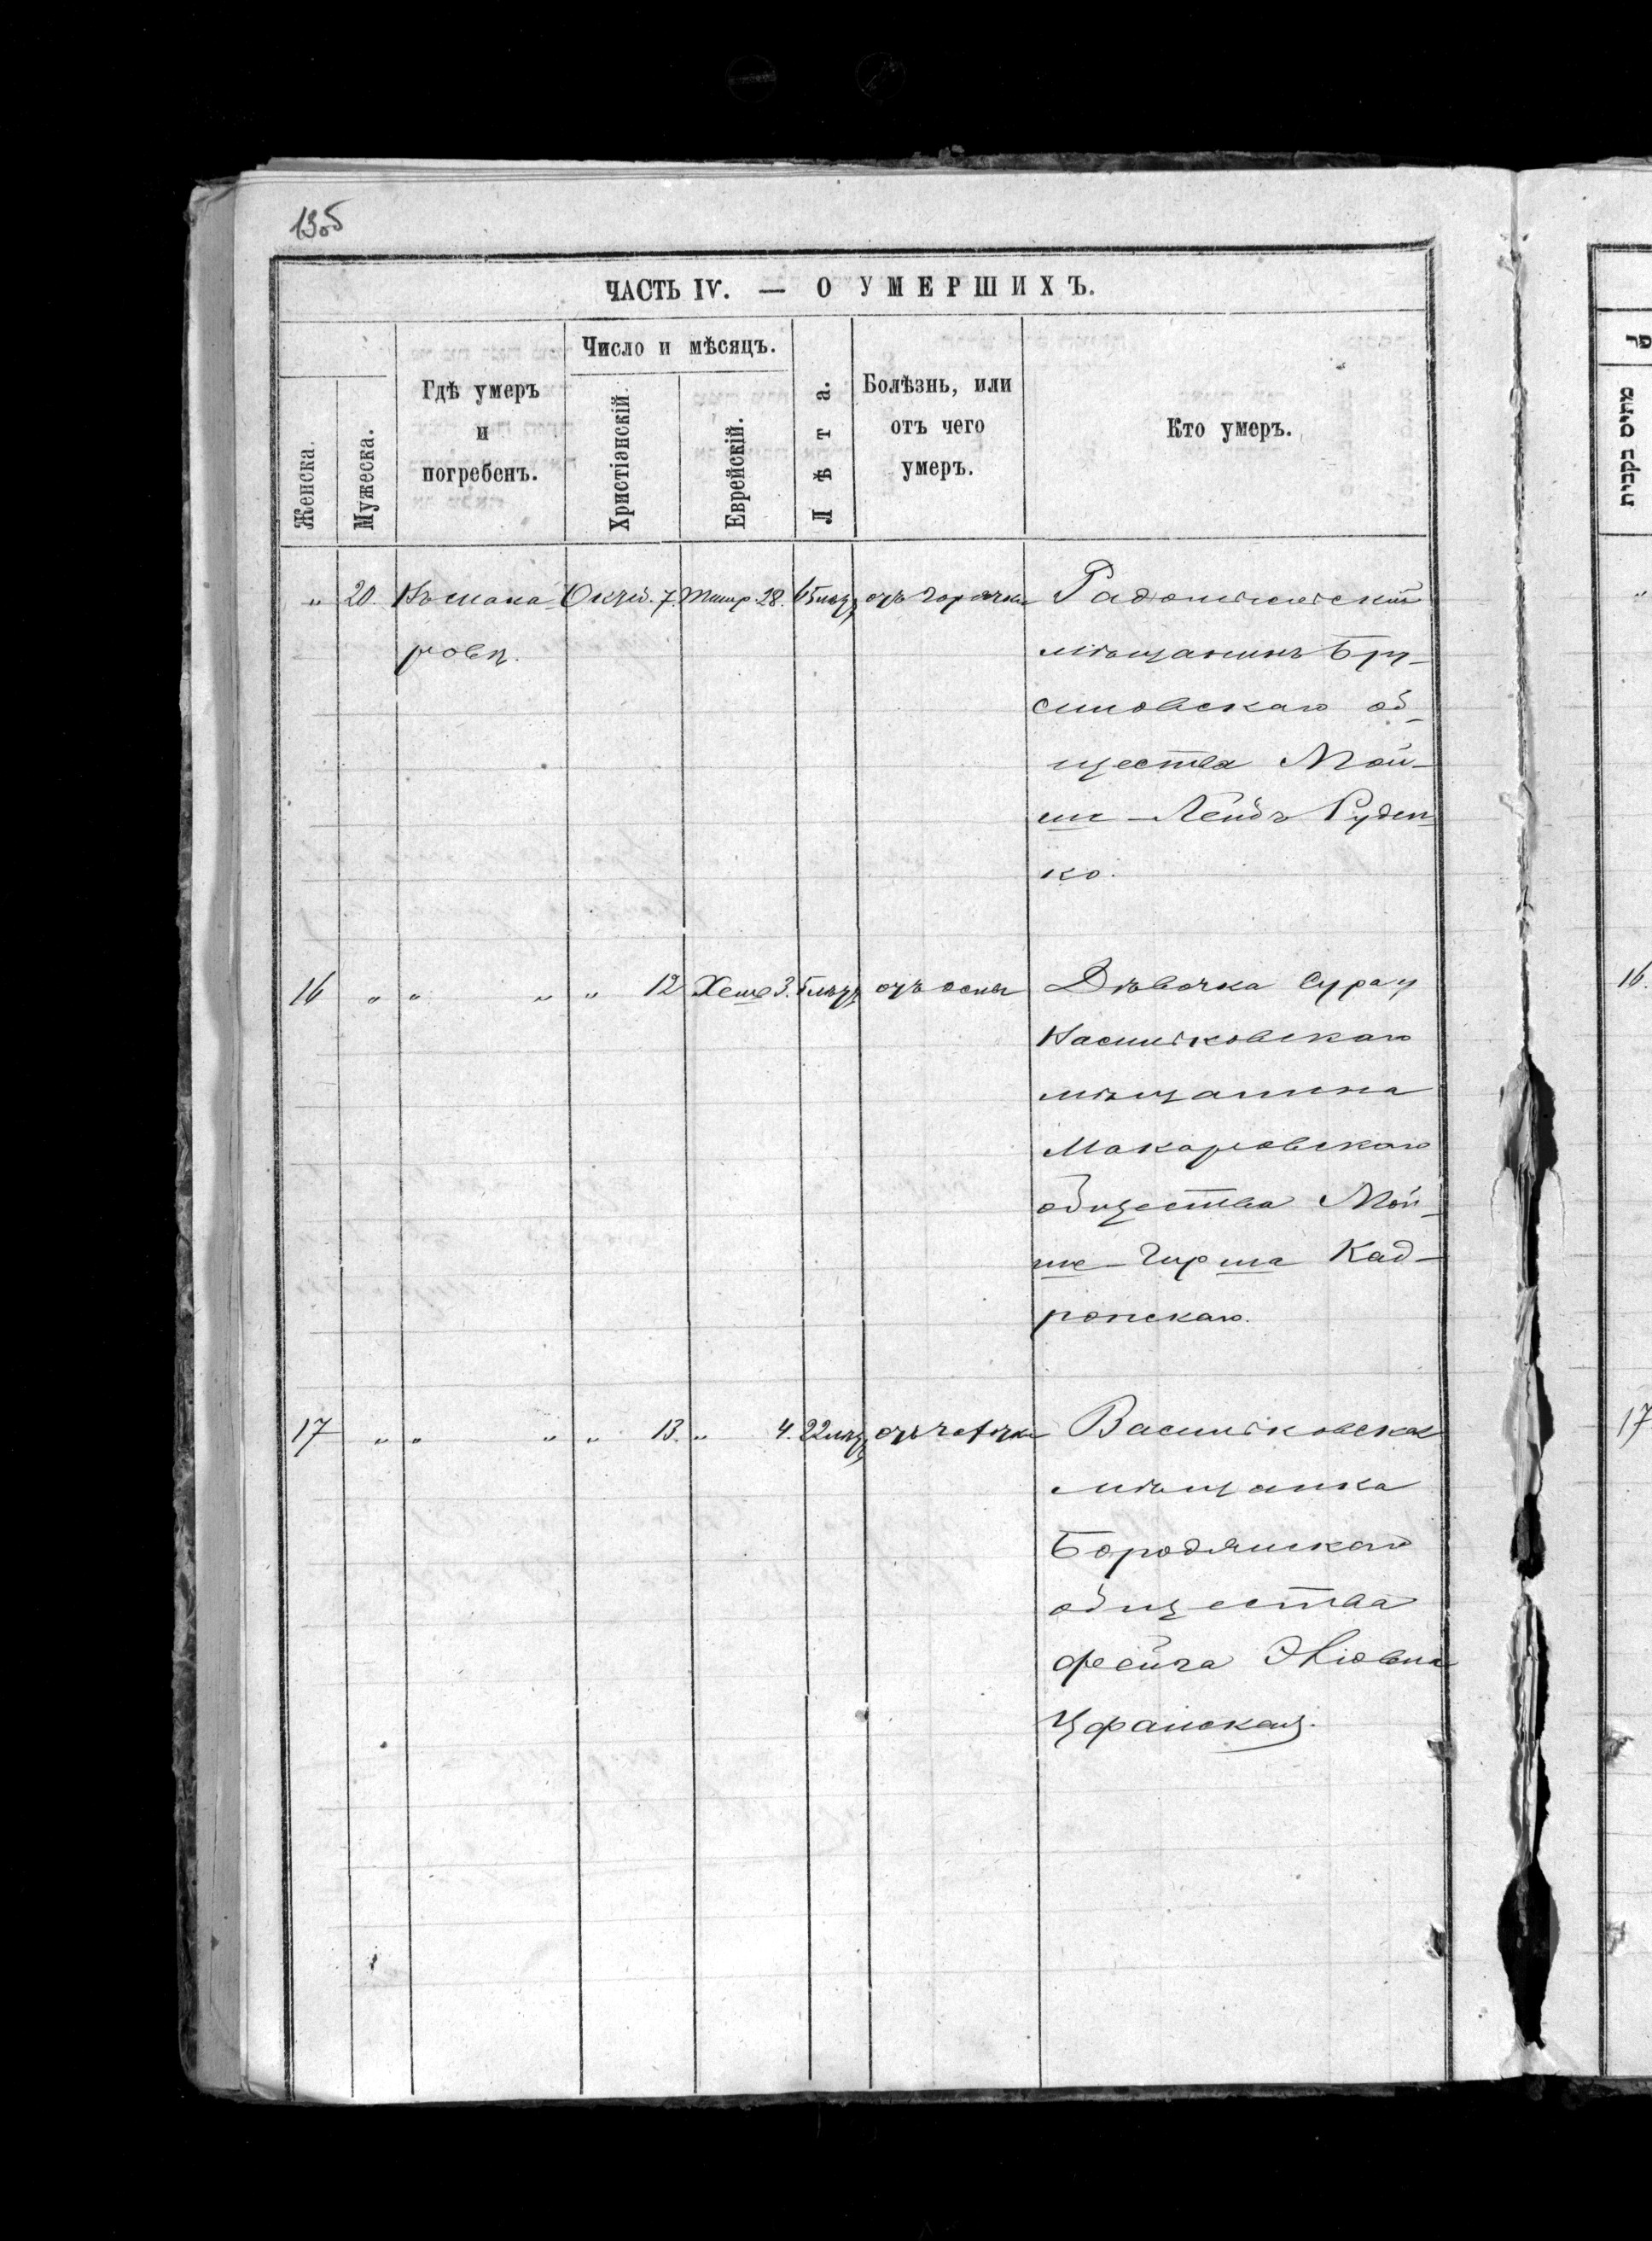 135
ЧАСТЬ IV. — О УМЕРШИХЪ.
Женска.
Мужеска.
Гдѣ умеръ
и
погребенъ.
Число и мѣсяцъ.
Христіэнскій.
Еврейскій.
Лѣта.
Болѣзнь, или
отъ чего
умеръ.
Кто умеръ.
" 20. Въ мака- Октяб. 7. Тишр. 28. отъ горячки Радомысльскій
ровѣ. мѣщанинъ Бру-
силовскаго об-
щества Мой-
ше-Лейбъ Руден-
ко.
16 " " " " 12 Хешв 3. отъ оспы Дѣвочка Сура у
Васильковскаго
мѣщанина
Макаровскаго
общества Мой-
ше-Гирша Кад-
ронскаго.
17 " " " " 13. " 4. отъ Васильковская
мѣщанка
Бородянскаго
общества
Фейга
פר
מתים
נקבות
"
16.
17